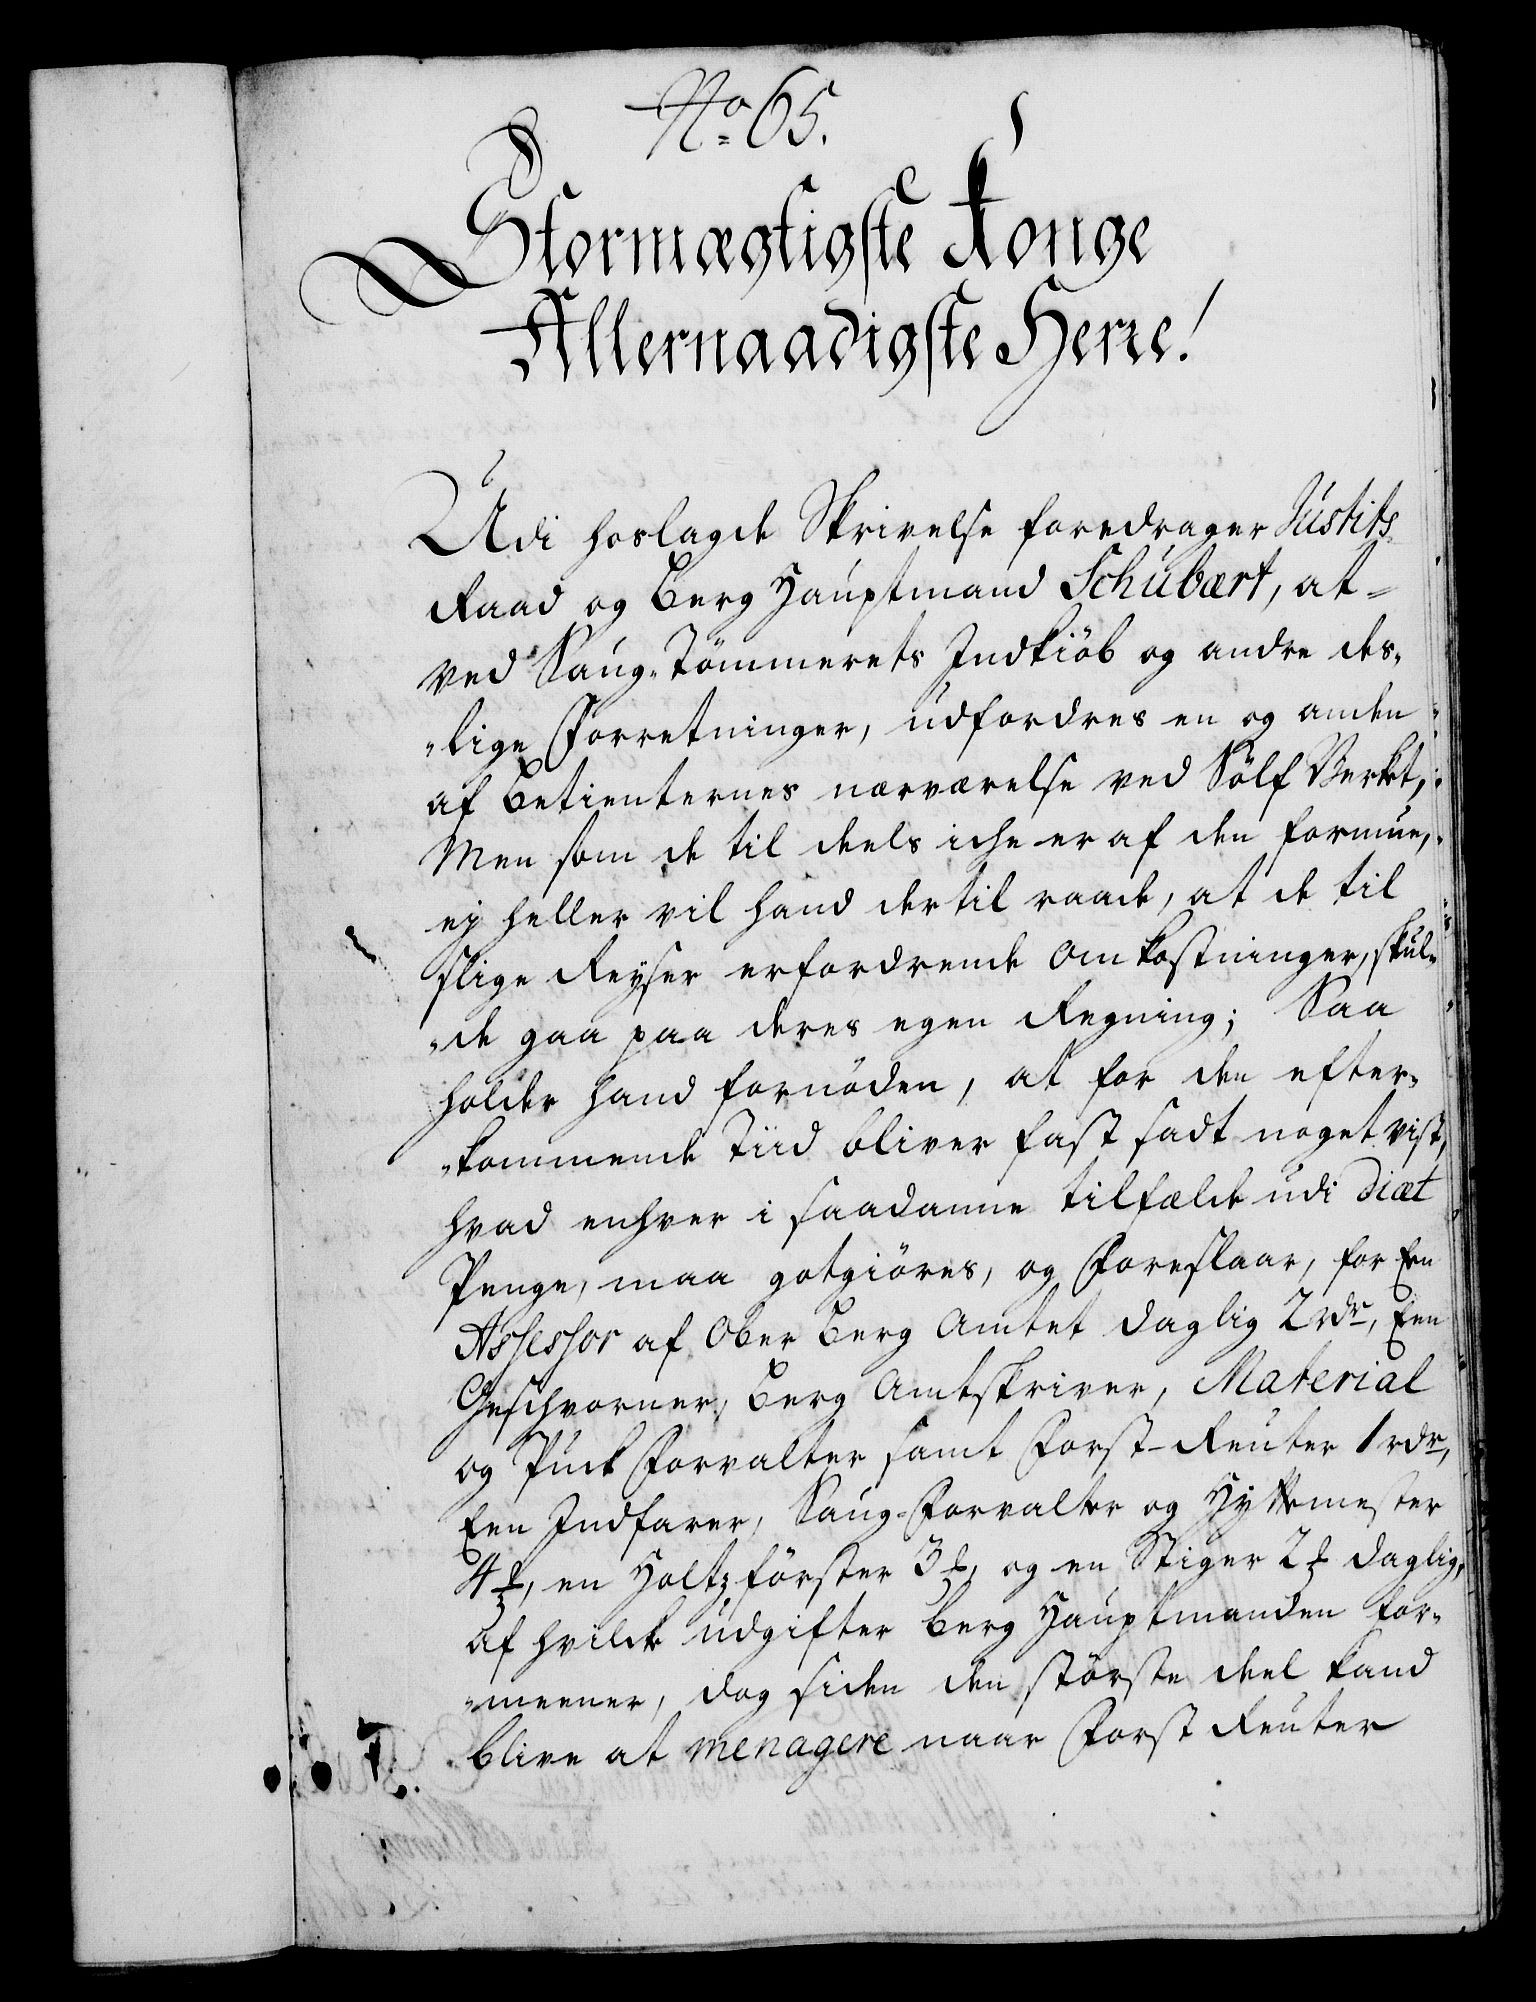 No 65.
Stormægtigste Konge
Allernaadigste Herre!
Udi hoslagde Skrivelse foredrager Justits
Raad og Berg Hauptmand Schubært, at
ved Saug-Tömmerets Indkiöb og andre des-
-lige Forretninger, udfordres en og anden
af Betienternes nærværelse ved Sölf Verket,
Men som de til deels iche er af den formue,
ej heller vil hand dertil raade, at de til
slige Reyser erfordrende Omkostninger, skul-
-de gaa paa deres egen Regning; Saa
holder hand fornöden, at for den efter-
-kommende Tiid bliver fast sadt noget vist,
hvad enhver i saadanne tilfælde udi Diæt
Penge, maa gotgiöres, og Foreslaar, for Een
Assessor af Ober Berg Amtet daglig 2 rdr, Een
Geschvorner, Berg Amtskriver, Material
og Puck Forvalter samt Forst-Reuter 1 rdr,
Een Indfarer, Saug-Forvalter og Hyttemester
4 ꝑ, en Holtzförster 3 ꝑ, og en Stiger 2 ꝑ daglig,
Af hvilcke udgifter Berg Hauptmanden for-
-meener, dog siden den störste deel kand
blive at menagere naar Forst Reuter